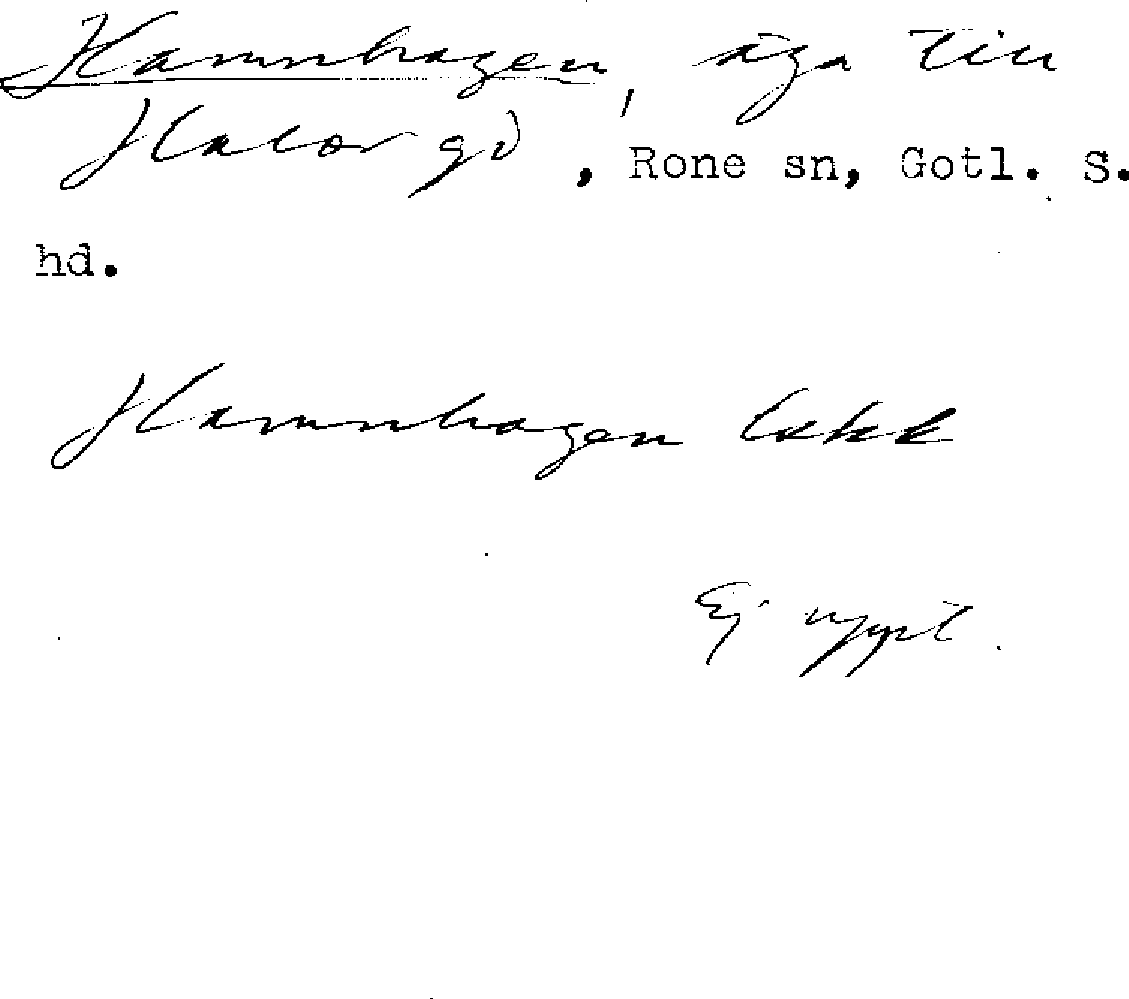 Hamnhagen, äga till
Halor gd, Rone sn, Gotl. S.
hd.
Hamnhagen
Ej uppt.